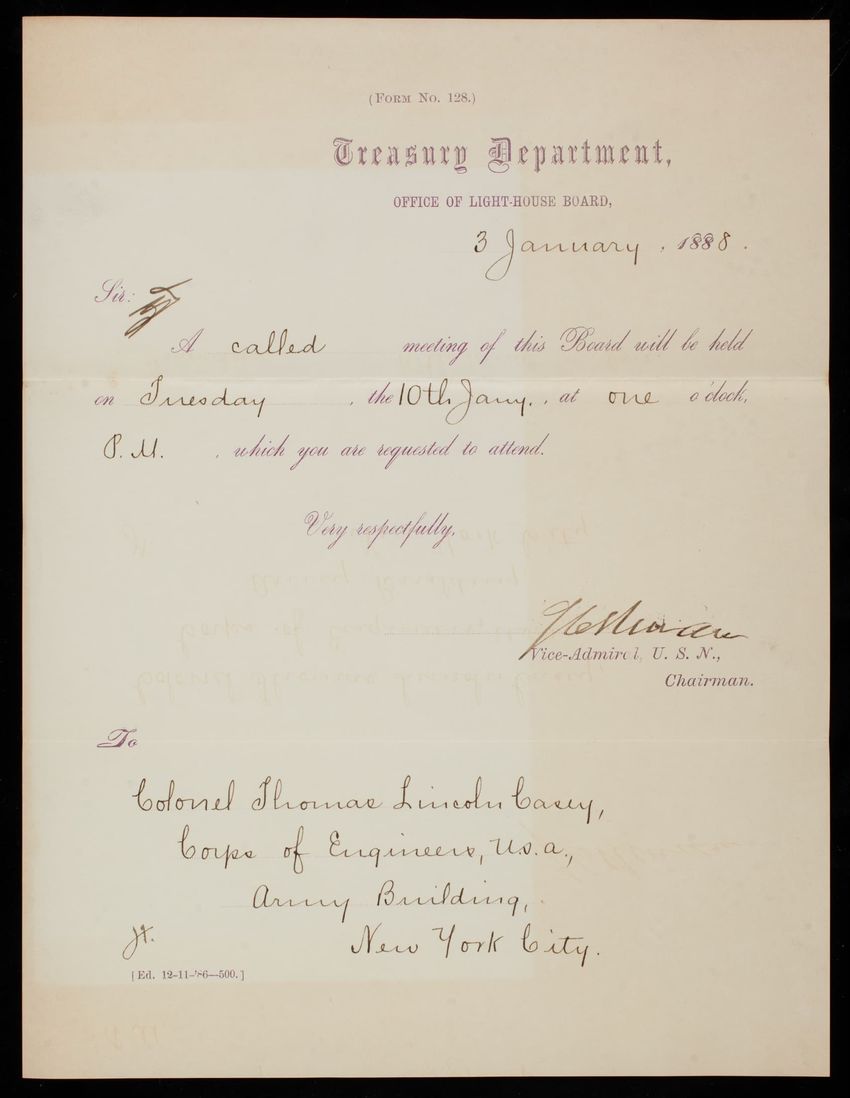 (FORM NO. 128.)
Treasury Department,
OFFICE OF LIGHT-HOUSE BOARD,
3 January, 1888.
Sir:
A called meeting of this Board will be held
on Tuesday, the 10th Jany., at one o'clock,
P.M., which you are requested to attend.
Very respectfully,
Vice-Admiral, U. S. N.,
Chairman.
To
Colonel Thomas Lincoln Casey,
Corps of Engineers, U.S.A.,
Army Building,
New York City.
[Ed. 12-11-'86—500.]